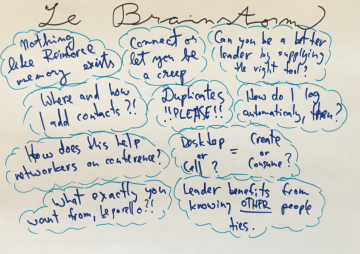 Le Brainstorm
Nothing
like Reimoree
memory exists
Connect or
let you be
a creep
Can you be a better
leader by supplying
the right tool?
Where and how
I add contacts?!
Duplicates
!!PLEASE!!
How do I log
automatically, then?
How does this help
networkers on conference?
Desktop
or
Cell?
=
Create
or
Consume?
What exactly you
want from, leporello?!
Leader benefits from
knowing OTHER people
ties.